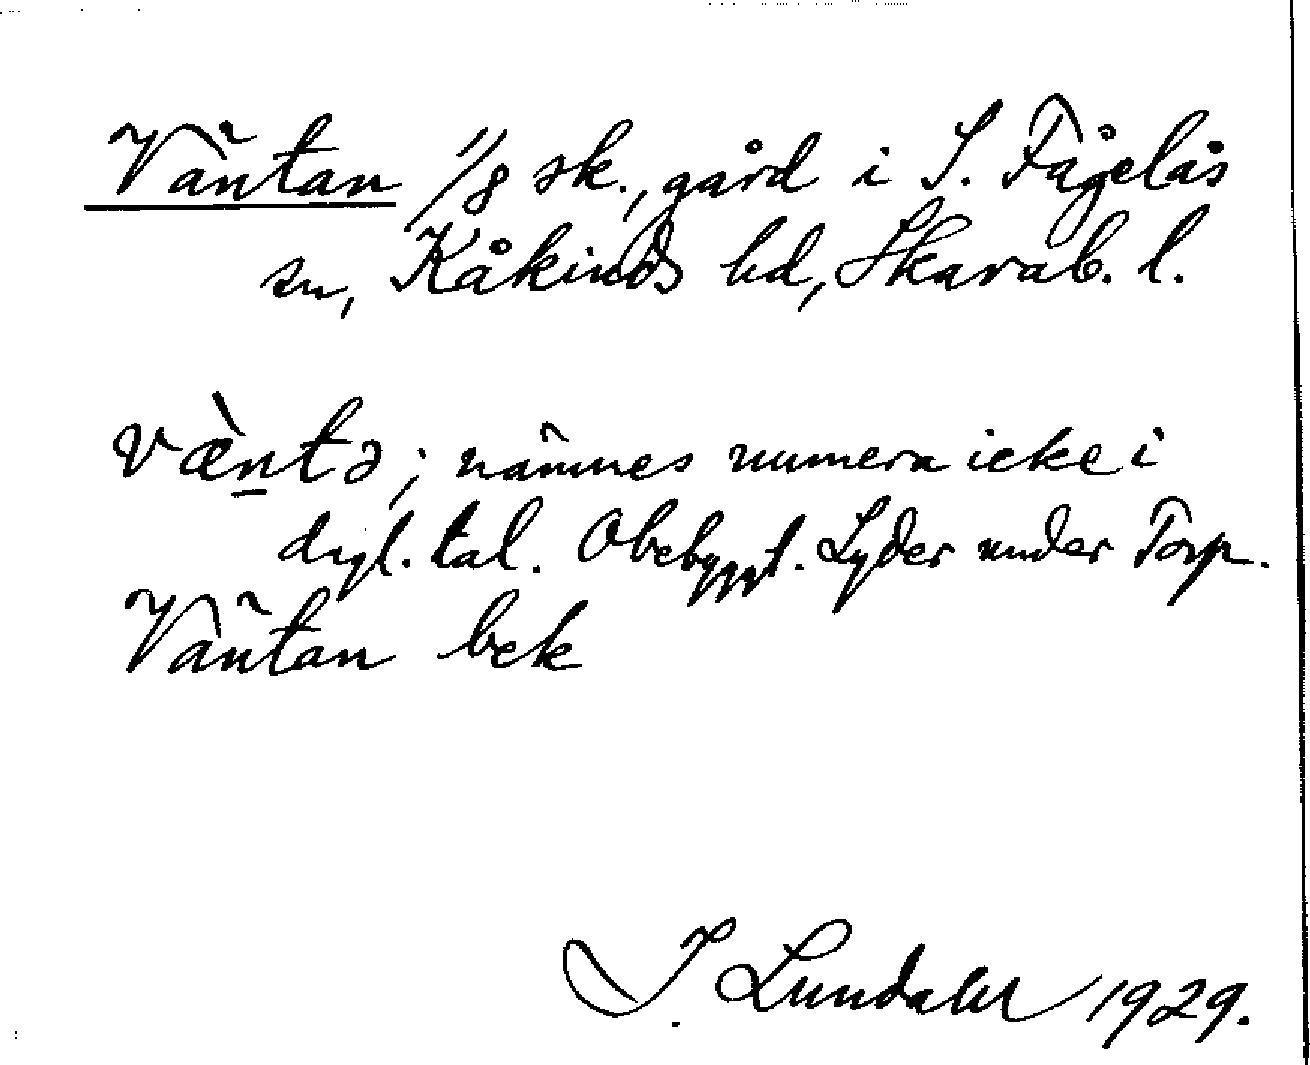 Väntan 1/8 sk., gård i S. Fågelås
sn, Kåkinds hd, Skarab. l.
væ̀n̠tə; nämnes numera icke i
dagl. tal. Obebyggt. Lyder under Torp.
Väntan bek
I. Lundahl 1929.